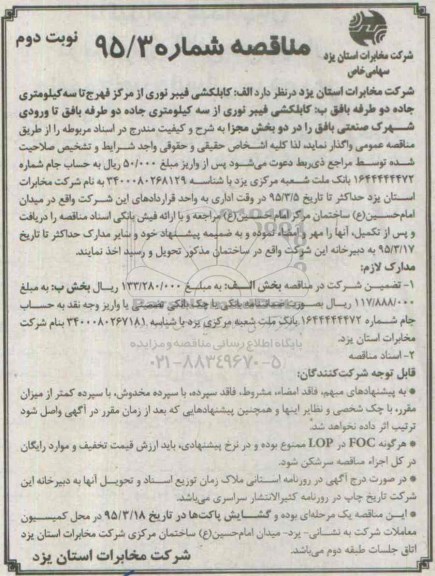 نوبت دوم
مناقصه شماره ۹۵/۳
شرکت مخابرات استان یزد
سهامی خاص
شرکت مخابرات استان یزد درنظر دارد الف: کابلکشی فیبر نوری از مرکز فهرج تا سه کیلومتری
جاده دو طرفه بافق ب: کابلکشی فیبر نوری از سه کیلومتری جاده دو طرفه بافق تا ورودی
شهرک صنعتی بافق را در دو بخش مجزا به شرح و کیفیت مندرج در اسناد مربوطه را از طریق
مناقصه عمومی واگذار نماید، لذا کلیه اشخاص حقیقی و حقوقی واجد شرایط و تشخیص صلاحیت
شده توسط مراجع ذیربط دعوت می‌شود پس از واریز مبلغ ۵۰/۰۰۰ ریال به حساب جام شماره
۱۶۴۴۴۴۴۴۷۲ بانک ملت شعبه مرکزی یزد با شناسه ۳۴۰۰۰۸۰۲۶۸۱۲۹ به نام شرکت مخابرات
استان یزد حداکثر تا تاریخ ۹۵/۳/۵ در وقت اداری به واحد قراردادهای این شرکت واقع در میدان
امام‌حسین(ع) ساختمان مرکز امام‌حسین(ع) مراجعه و با ارائه فیش بانکی اسناد مناقصه را دریافت
و پس از تکمیل، آنها را مهر و امضاء نموده و به ضمیمه پیشنهاد خود و سایر مدارک حداکثر تا تاریخ
۹۵/۳/۱۷ به دبیرخانه این شرکت واقع در ساختمان مذکور تحویل و رسید اخذ نمایند.
مدارک لازم:
۱- تضمین شرکت در مناقصه بخش الف: به مبلغ ۱۳۳/۲۸۰/۰۰۰ ریال بخش ب: به مبلغ
۱۱۷/۸۸۸/۰۰۰ ریال بصورت ضمانتنامه بانکی یا چک بانکی تضمینی یا واریز وجه نقد به حساب
جام شماره ۱۶۴۴۴۴۴۴۷۲ بانک ملت شعبه مرکزی یزد با شناسه ۳۴۰۰۰۸۰۲۶۷۱۸۱ بنام شرکت
مخابرات استان یزد.
پایگاه اطلاع رسانی مناقصه و مزایده
۲- اسناد مناقصه
۰۲۱-۸۸۳۴۹۶۷۰-۵
قابل توجه شرکت‌کنندگان:
● به پیشنهادهای مبهم، فاقد امضاء، مشروط، فاقد سپرده، با سپرده مخدوش، با سپرده کمتر از میزان
مقرر، با چک شخصی و نظایر اینها و همچنین پیشنهادهایی که بعد از زمان مقرر در آگهی واصل شود
ترتیب اثر داده نخواهد شد.
● هرگونه FOC در LOP ممنوع بوده و در نرخ پیشنهادی، باید ارزش قیمت تخفیف و موارد رایگان
در کل اجزاء مناقصه سرشکن شود.
● در صورت درج آگهی در روزنامه استانی ملاک زمان توزیع اسناد و تحویل آنها به دبیرخانه این
شرکت تاریخ چاپ در روزنامه کثیرالانتشار سراسری می‌باشد.
● این مناقصه یک مرحله‌ای بوده و گشایش پاکت‌ها در تاریخ ۹۵/۳/۱۸ در محل کمیسیون
معاملات شرکت به نشانی- یزد- میدان امام‌حسین(ع) ساختمان مرکزی شرکت مخابرات استان یزد
اتاق جلسات طبقه دوم می‌باشد.
شرکت مخابرات استان یزد